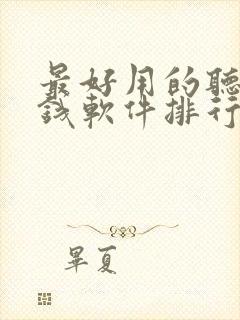 最好用的聽
錢軟件排行
畢夏